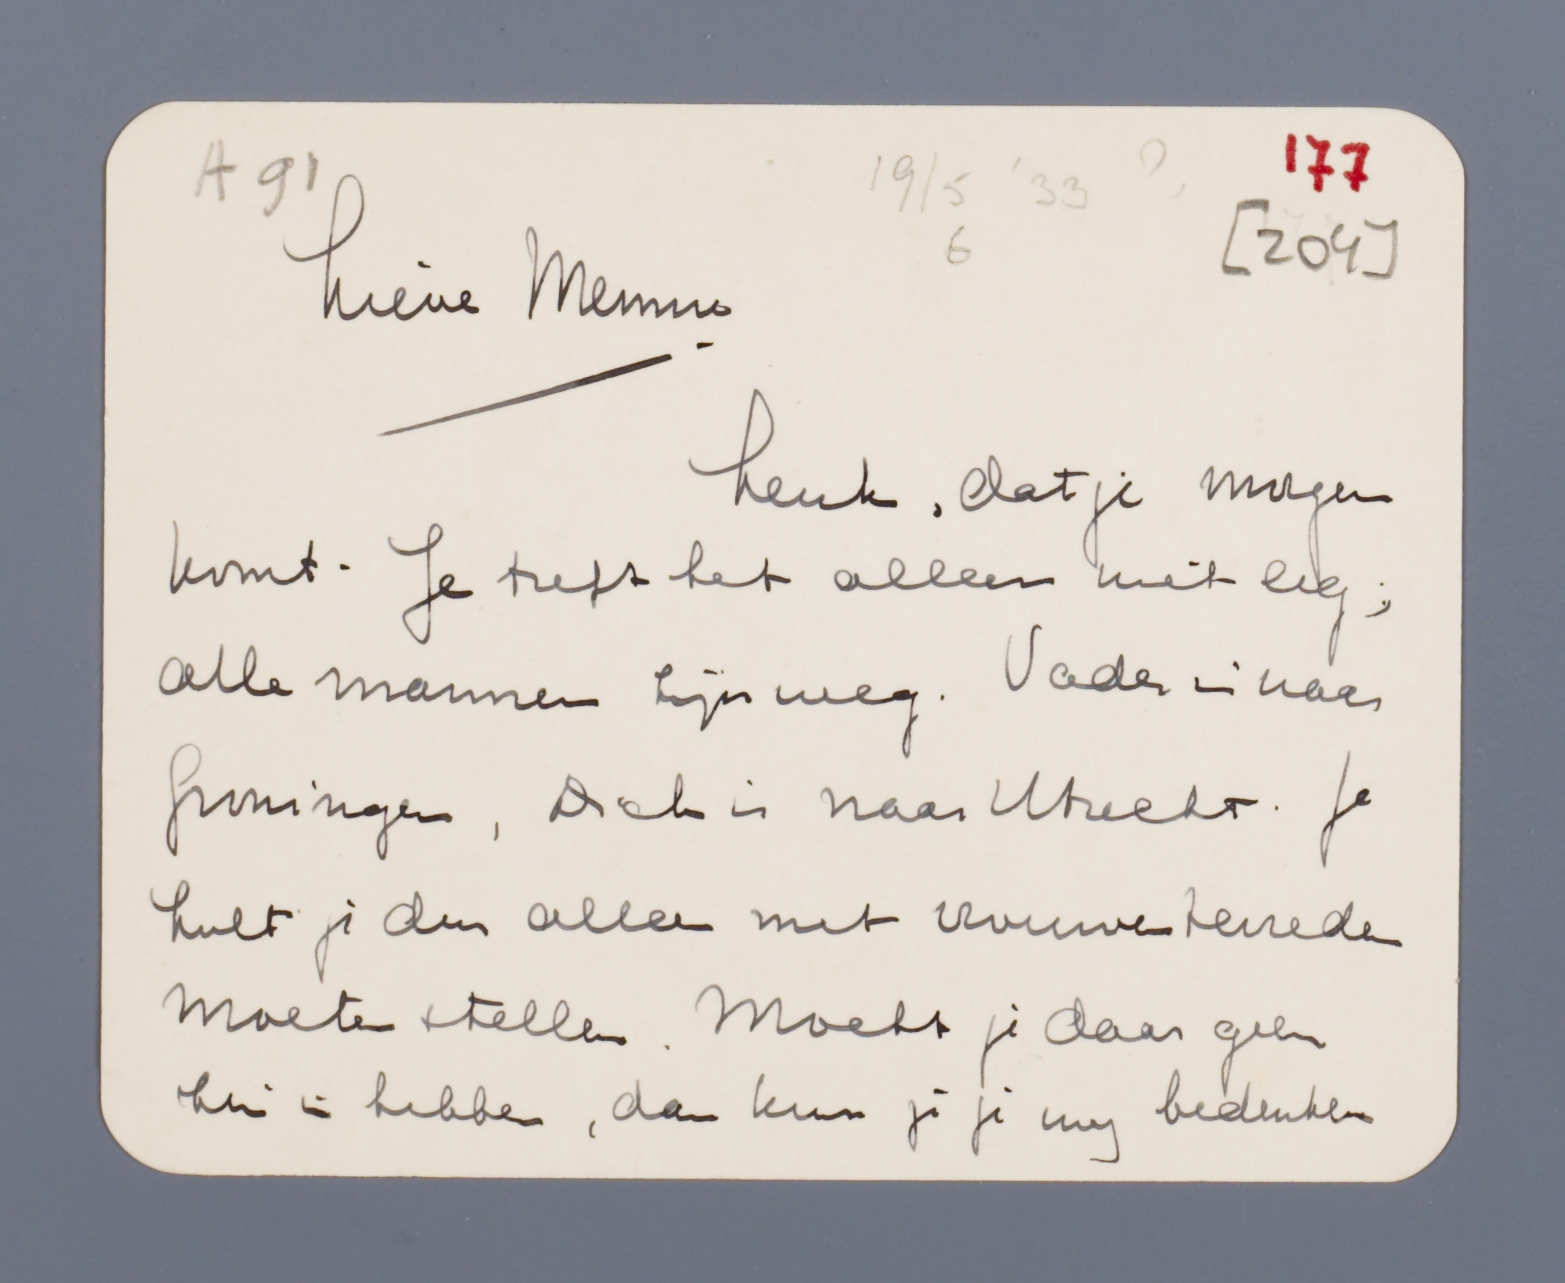 A 91
19/5 '33 ?
6
177
[204]
Lieve Menno
Leuk, dat je morgen
komt. Je treft het alleen niet leeg;
alle mannen zijn weg. Vader is naar
Groningen, Dick is naar Utrecht. Je
zult je dus alleen met vrouwen tevreden
moeten stellen. Mocht je daar geen
zin in hebben, dan kun je je nog bedenken